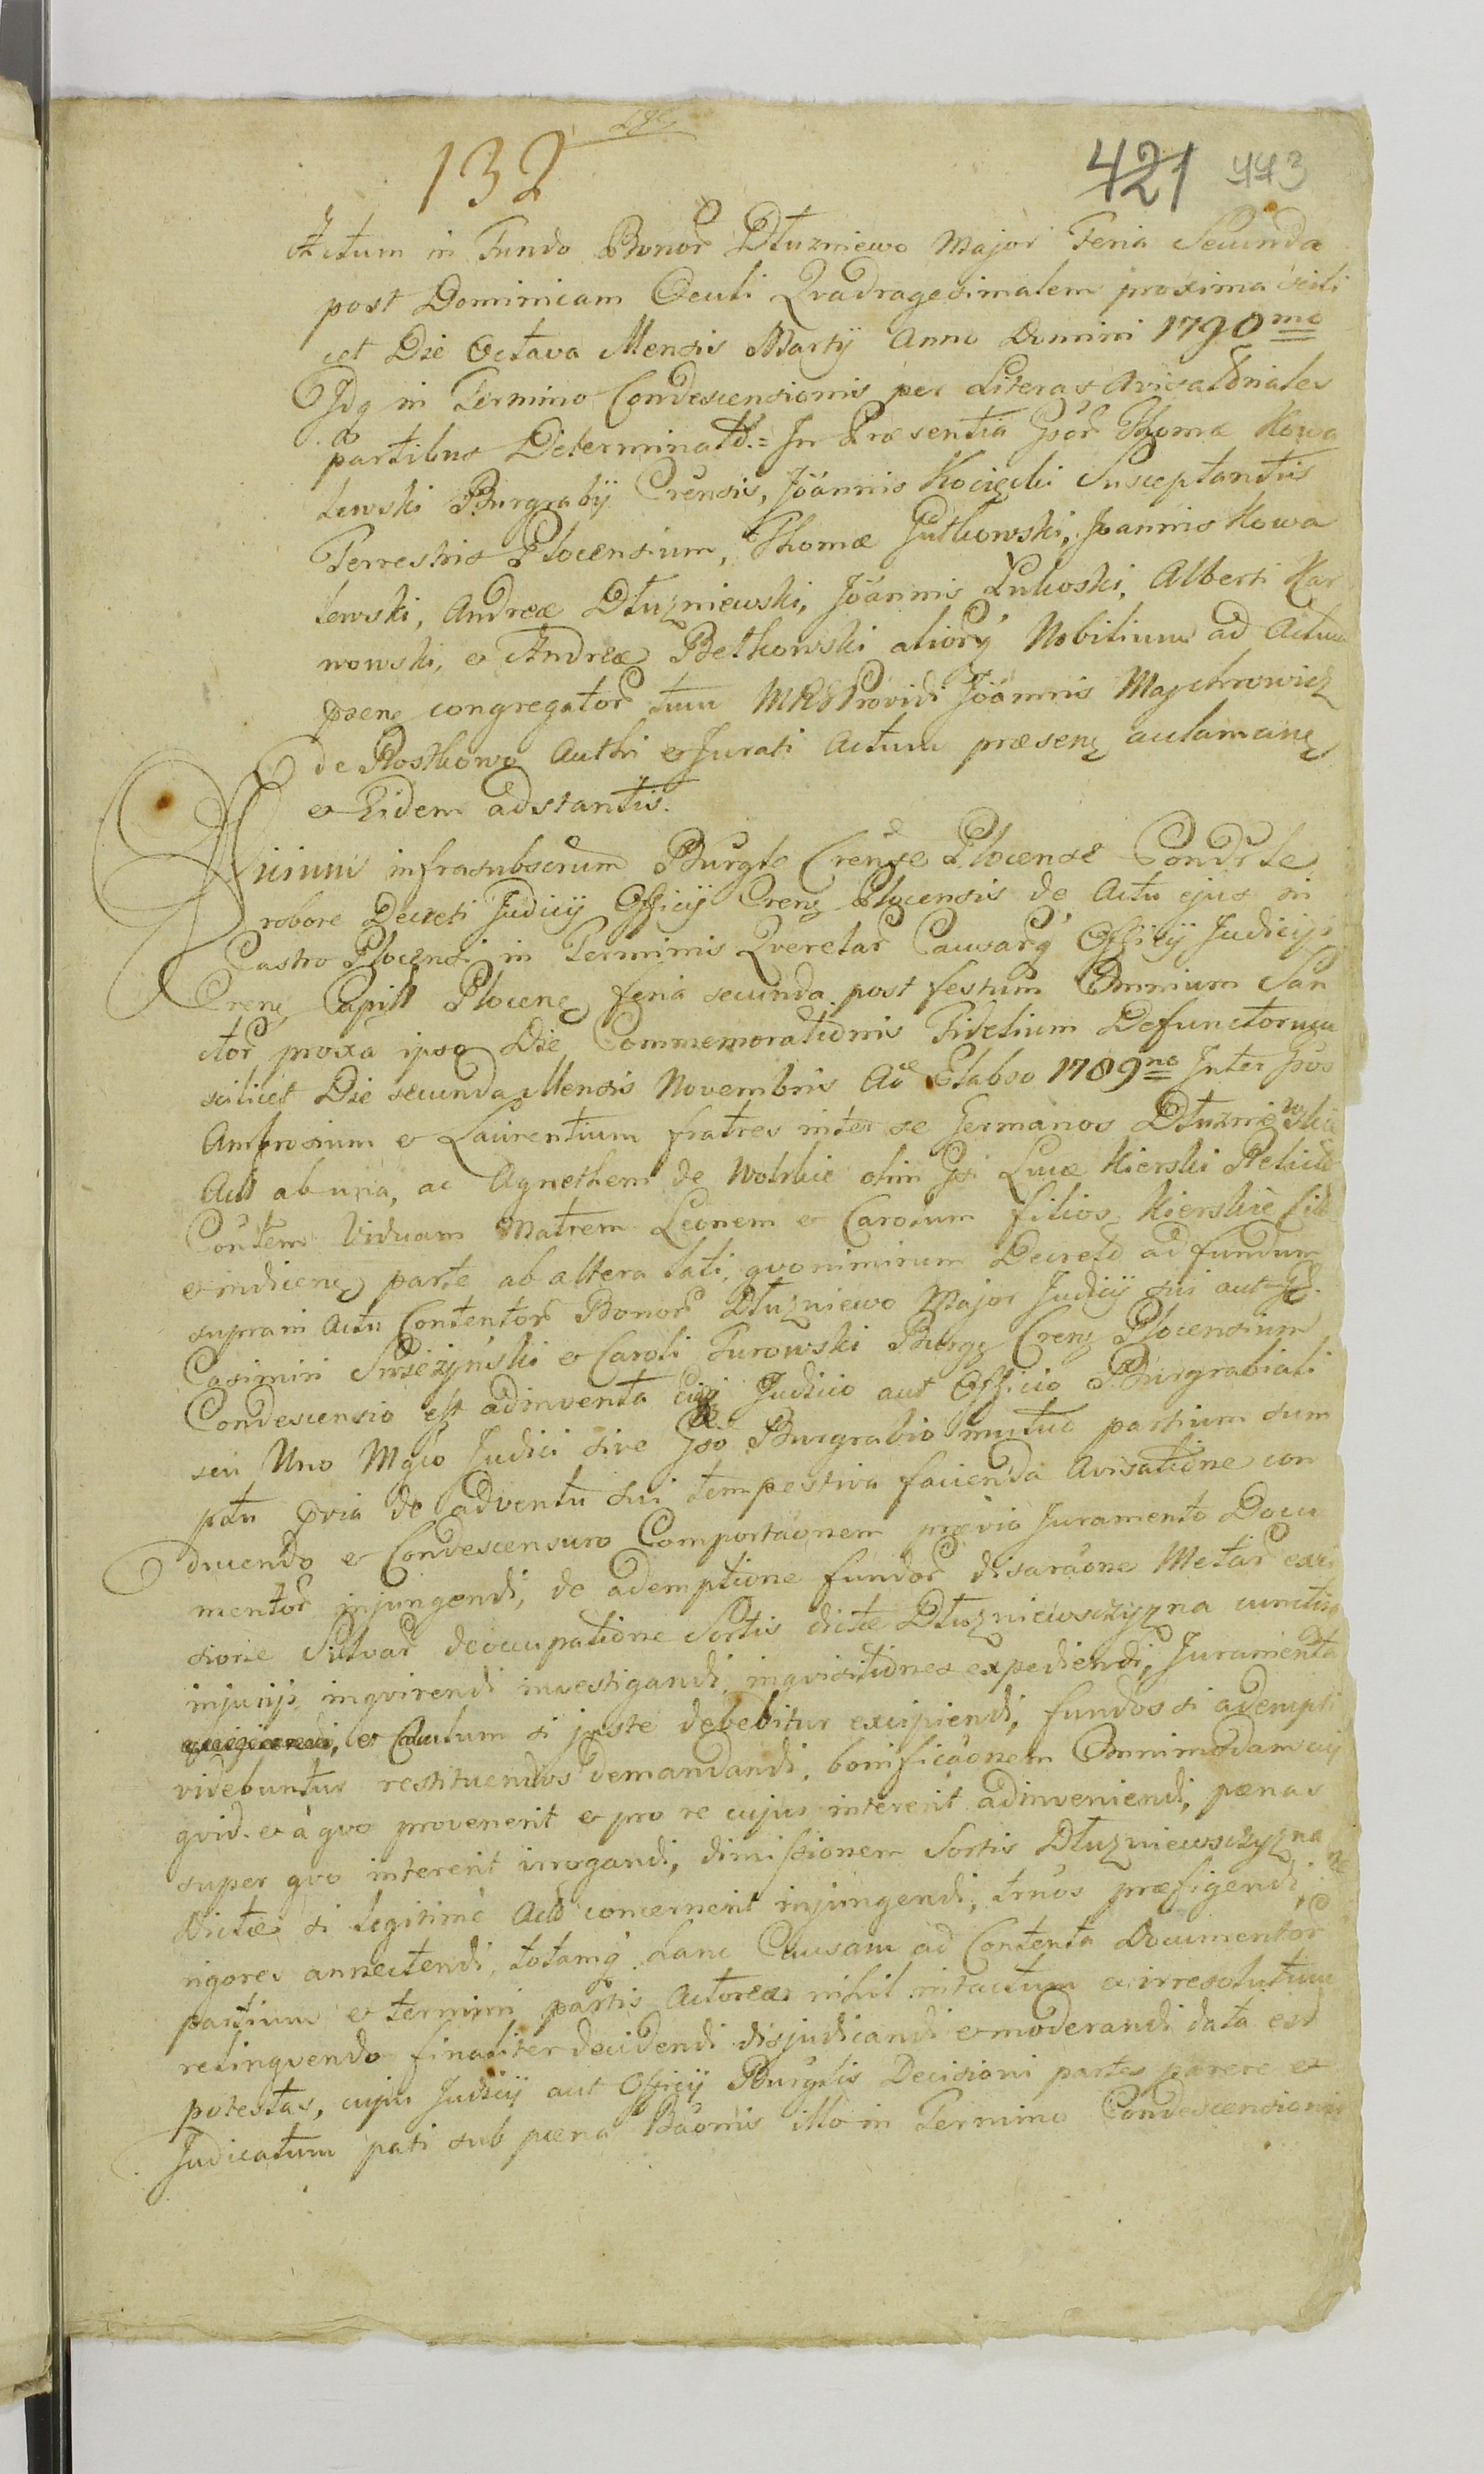 132
421 443
Actum in Fundo Bonor Dłuzniewo Major Feria Secunda
post Dominicam Oculi Qvadragesimalem proxima scili
cet Die Octava Mensis Martÿ Anno Domini 1790mo
Idq in Termino Condescensionis per Literas Avisationales
partibus Determinato = In Præsentia Gsor Thomæ Kowa
lewski Burgrabÿ Crensis, Joannis Kocięcki Susceptantis
Terrestris Plocensium, Thomæ Gutkowski, Joannis Kowa
lewski, Andreæ Dłuzniewski, Joannis Łukoski, Alberti Kar
nowski, et Andreæ Betkowski aliorq Nobilium ad Actum
præsen congregator tum Providi Joannis Maychrowicz
de Rostkowo Authri et Jurati Actum præsens aclamans
et Eidem adstantis.
infrasubscrum Burgle Crense Plocense Condrle
robore Decreti Judicÿ Officÿ Crens Plocensis de Actu ejus in
Castro Plocensi in Terminis Qverelar Causarq Officÿ Judicÿs
Crens Capitt Plocens feria secunda post festum Omnium San
ctor proxa ipso Die Commemorationis Fidelium Defunctorum
scilicet Die secunda Mensis Novembris Ao Elabso 1789no Inter Gsos
Ambrosium et Laurentium fratres inter se Germanos Dłuzniewskie
Act ab una, ac Agnethem de Wolskie olim Gsi Lucæ Kierski Relict
Contem Viduam Matrem Leonem et Carolum filios Kierskie Cit
et indicens parte ab altera lati, qvo nimirum Decreto ad fundum
supra in Actu Contentor Bonor Dłuzniewo Major Judicÿ sui aut
Casimiri Smezyński et Caroli Turowski Burgs Crens Plocensium
Condescensio est adinventa Eiq Judicio aut Officio Burgrabiali
seu Uno Mgco Judici sive Gso Burgrabio mutuo partium sum
ptu pvia de adventu sui tempestiva facienda Avisatione con
ducendo et Condescensuro Comportaonem prævio Juramento Docu
mentor injungendi, de ademptione fundor disaraone Metar exci
sione Silvar deoccupatione Sortis dictæ Dłuzniewszczyzna cunctisq
injurÿs inqvirendi investigandi, inqvisitiones expediendi, Juramenta
et Calculum si juste debebitur excipiendi, fundos si adempti
videbuntur restituendos demandandi, bonificaonem Omnimodam cuj
qvid et a qvo provenerit et pro re cujus intererit adinveniendi, pænas
super qvo intererit irrogandi, dimissionem Sortis Dłuzniewszczyzna
dictæ si legitime Act concernerit injungendi, trnos præfigendi
rigores annectendi, totamq hanc Causam ad Contenta Documentor
partium et termini partis Actoreæ nihil intactum et irresolutum
relinqvendo finaliter decidendi disjudicandi et moderandi data est
potestas, cujus Judicÿ aut Officÿ Burglis Decisioni partes parere et
Judicatum pati sub pæna Baonis illo in Termino Condescensionis